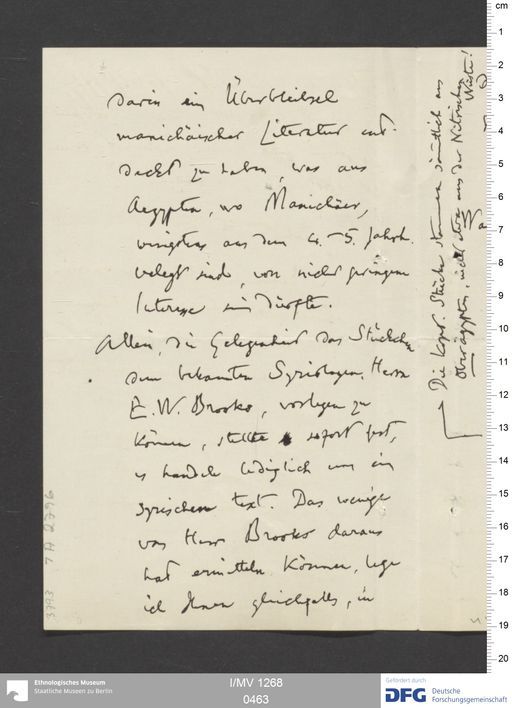 darin ein Überbleibsel
manichäischer Literatur ent-
deckt zu haben, was aus
Aegypten, wo Manichäer,
wenigstens aus dem 4.-5. Jahrh.
belegt sind, von nicht geringem
Interesse sein dürfte.
Allein, die Gelegenheit das Stückchen
dem bekannten Syriologen, Herrn
E. W. Brooks, vorlegen zu
können, stellte sofort fest,
es handele lediglich um ein
syrischen text. Das wenige
was Herr Brooks daraus
hat ermitteln können, lege
ich Ihnen gleichfalls, in
Die kopt. Stücke stammen sämtlich aus
Oberägypten, nicht etwa aus der Nitrischen
Wüste!
3793 7 A 2796
cm
1
2
3
4
5
6
7
8
9
10
11
12
13
14
15
16
17
18
19
20
Ethnologisches Museum
Staatliche Museen zu Berlin
I/MV 1268
0463
Gefördert durch
DFG Deutsche
Forschungsgemeinschaft